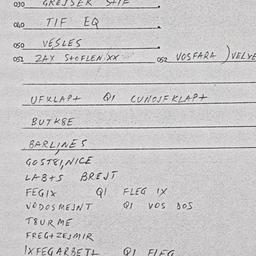 030 GREJSER STIF
040 TIF EQ
050 VESLES
051 ZAX STOFLEN XX 052 VOSFARA ) VELYE
UFKLAPT QI CUNOJFKLAPT
BUTKSE
BARLINES
GOSTEINICE
LABTS BREJT
FEGIX QI FLEG IX
VODOSMEJNT QI VOS DOS
TSURME
FREGTZEJMIR
IXFEGARBETL QI FLEG